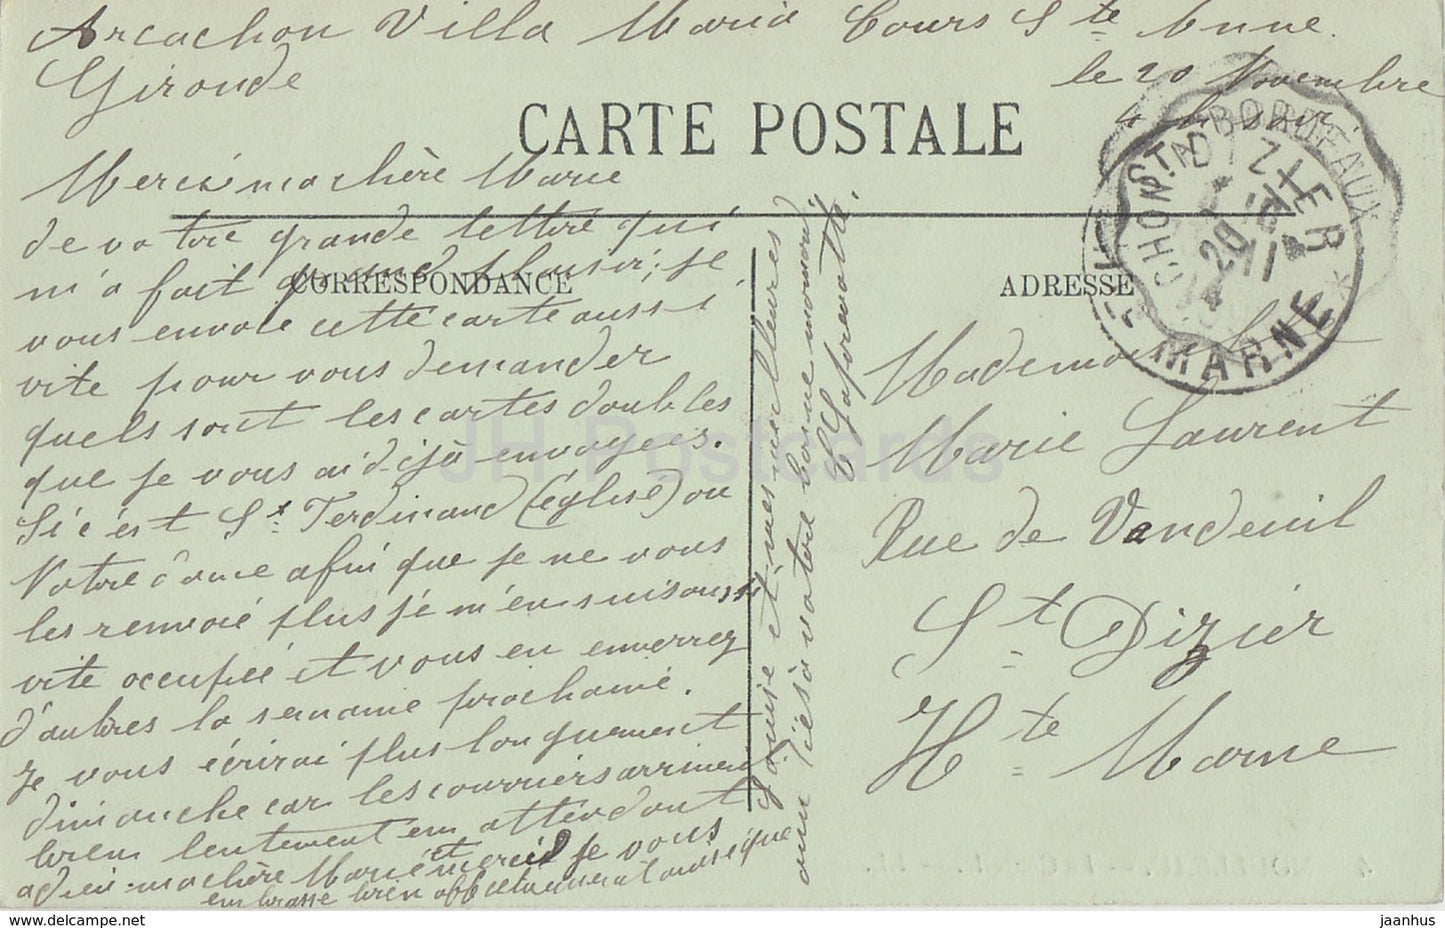 Arcachon Villa Maria Cours Ste Anne
Gironde
le 20 Novembre
4 h soir
CARTE POSTALE
Merci ma chère Marie
de votre grande lettre qui
m'a fait grand plaisir; je
vous envoie cette carte aussi
vite pour vous demander
quels sont les cartes doubles
que je vous ai déjà envoyées.
Si c'est St Ferdinand (église) ou
Notre dame afin que je ne vous
les renvoie plus je m'en suis aussi
vite occupée et vous en enverrez
d'autres la semaine prochaine.
Je vous écrirai plus longuement
dimanche car les courriers arrivent
bien lentement en attendant
adieu ma chère Marie et merci je vous
embrasse bien affectueusement ainsi que
Louise et mes meilleures
amitiés à votre bonne maman
C Laforevotte.
CORRESPONDANCE
ADRESSE
Mademoiselle
Marie Laurent
Rue de Vandeuil
St Dizier
Hte Marne
ARCHON A BORDEAUX
ST DIZIER
20 11
14
HTE MARNE
JH Postcards
hip-on-line.net
jaanhus